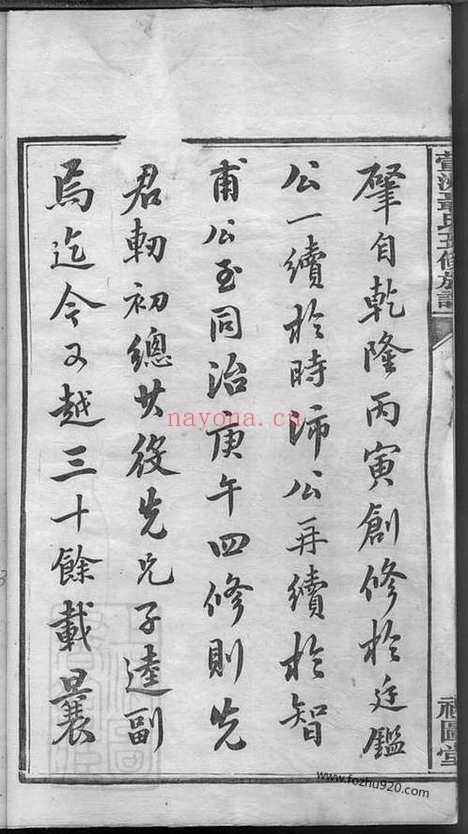 肇自乾隆丙寅創修於廷鑑
公一續於時沛公再續於智
甫公至同治庚午四修則先
君軔初總其役先兄子達副
焉迄今又越三十餘載曩
氏五修族譜
祠圖堂
nayona.cn
www.fozhu920.com